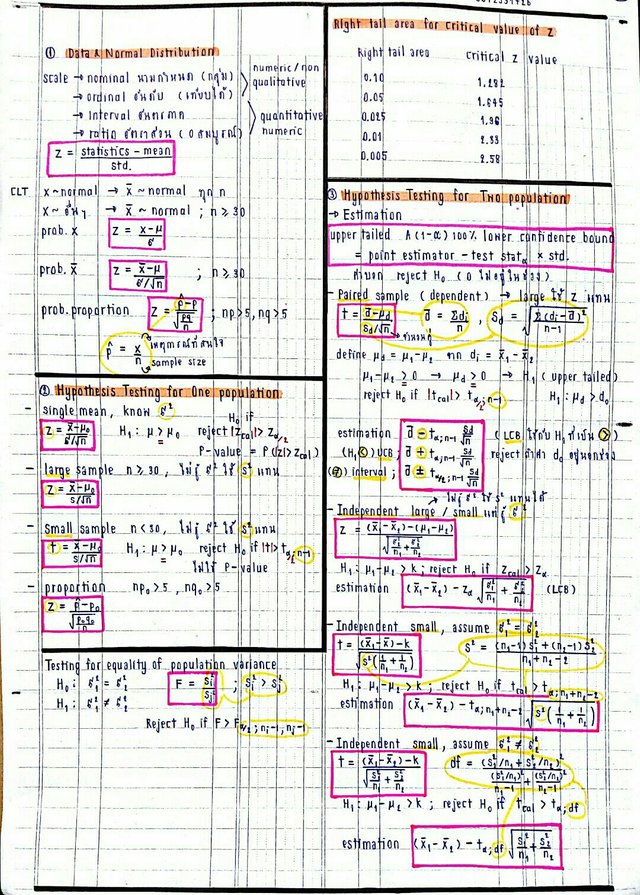 ① Data & Normal Distribution
scale → nominal นามกำหนด (กลุ่ม)
→ ordinal อันดับ (เทียบได้)
numeric/non
qualitative
→ interval อันตรภาค
→ ratio อัตราส่วน (0 สมบูรณ์)
quantitative
numeric
Z = statistics - mean / std.
CLT x ~ normal → x̄ ~ normal ทุก n
x ~ อื่นๆ → x̄ ~ normal ; n ≥ 30
prob. x Z = x-μ / σ
prob. x̄ Z = x̄-μ / σ/√n ; n ≥ 30
prob. proportion Z = p̂-p / √(pq/n) ; np>5, nq>5
p̂ = x/n
เหตุการณ์ที่สนใจ
sample size
② Hypothesis Testing for One population
single mean, know σ²
Z = x̄-μ₀ / σ/√n
H₁: μ > μ₀
H₀ if
reject |Zcal| > Zα/2
P-value = P(|Z| > Zcal)
- large sample n ≥ 30, ไม่รู้ σ² ใช้ s² แทน
Z = x̄-μ₀ / s/√n
- small sample n < 30, ไม่รู้ σ² ใช้ s² แทน
t = x̄-μ₀ / s/√n H₁: μ > μ₀ reject H₀ if |t| > tα, n-1
ไม่ใช้ P-value
- proportion np₀>5, nq₀>5
Z = p̂-p₀ / √(p₀q₀/n)
Testing for equality of population variance
H₀: σ₁² = σ₂²
H₁: σ₁² ≠ σ₂²
F = Si² / Sj² ; Si² > Sj²
Reject H₀ if F > Fα/2; ni-1, nj-1
Right tail area for critical value of Z
Right tail area critical Z value
0.10 1.282
0.05 1.645
0.025 1.96
0.01 2.33
0.005 2.58
③ Hypothesis Testing for Two population
→ Estimation
upper tailed A (1-α) 100% lower confidence bound
= point estimator - test statα × std.
reject H₀ (0 ไม่อยู่ในช่วง)
- Paired sample (dependent) → large ใช้ Z แทน
t = d̄-μd / Sd/√n d̄ = Σdi / n , Sd = √(Σ(di-d̄)² / n-1)
define μd = μ₁-μ₂ จาก di = x̄₁-x̄₂
μ₁-μ₂ > 0 → μd > 0 → H₁ (upper tailed)
reject H₀ if |tcal| > tα; n-1 H₁: μd > d₀
estimation d̄ - tα; n-1 Sd/√n (LCB ใช้กับ H₁ ที่เป็น >)
(H₁ <) UCB d̄ + tα; n-1 Sd/√n
(≠) interval d̄ ± tα/2; n-1 Sd/√n
- Independent large / small แต่รู้ σ²
Z = (x̄₁-x̄₂)-(μ₁-μ₂) / √(σ₁²/n₁ + σ₂²/n₂)
H₁: μ₁-μ₂ > k ; reject H₀ if Zcal > Zα
estimation (x̄₁-x̄₂) - Zα √(σ₁²/n₁ + σ₂²/n₂) (LCB)
- Independent small, assume σ₁² = σ₂²
t = (x̄₁-x̄)-k / √(s²(1/n₁ + 1/n₂)) s² = (n₁-1)s₁² + (n₂-1)s₂² / n₁+n₂-2
H₁: μ₁-μ₂ > k ; reject H₀ if tcal > tα; n₁+n₂-2
estimation (x̄₁-x̄₂) - tα; n₁+n₂-2 √(s²(1/n₁ + 1/n₂))
- Independent small, assume σ₁² ≠ σ₂²
t = (x̄₁-x̄₂)-k / √(s₁²/n₁ + s₂²/n₂) df = (s₁²/n₁ + s₂²/n₂)² / ((s₁²/n₁)²/(n₁-1) + (s₂²/n₂)²/(n₂-1))
H₁: μ₁-μ₂ > k ; reject H₀ if tcal > tα; df
estimation (x̄₁-x̄₂) - tα; df √(s₁²/n₁ + s₂²/n₂)